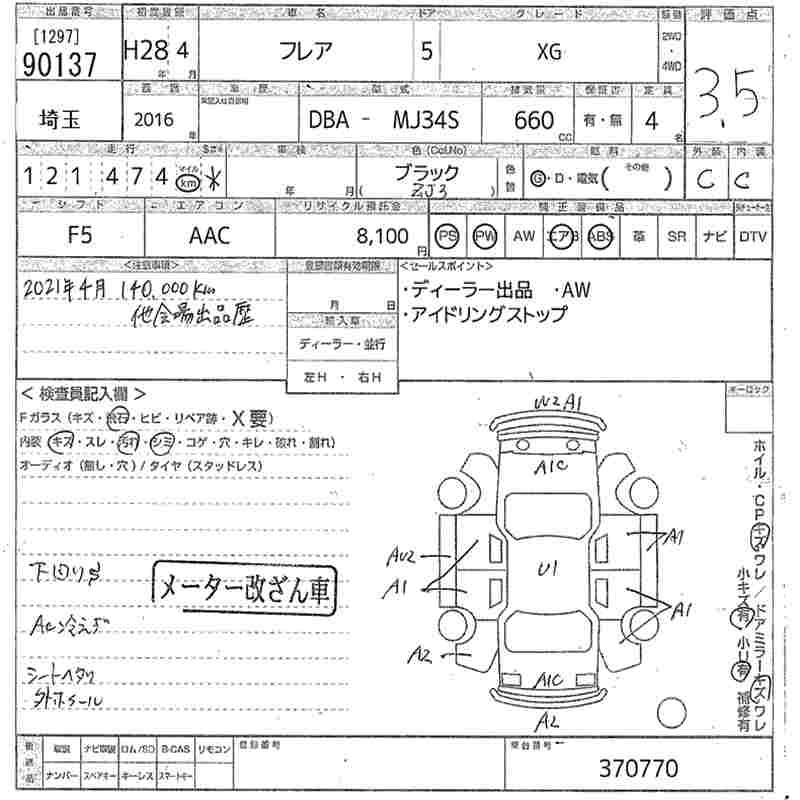 出品番号 初度登録 車名 ドア グレード 駆動 評価点
[1297]
90137 H28年 4月 フレア 5 XG 2WD・4WD 3.5
歴 車歴 型式 排気量 保証書 定員
埼玉 2016年 DBA - MJ34S 660cc 有・無 4名
走行 車検 色(Col.No) 燃料 その他 外装 内装
121474 マイル km * 年 月 ブラック (ZJ3) 色替 G・D・電気( ) C C
シフト エアコン リサイクル預託金 純正装備品
F5 AAC 8,100円 PS PW AW エアB ABS 革 SR ナビ DTV
<注意事項> 登録書類有効期限 <セールスポイント>
2021年4月 140,000km
他会場出品歴
月 日
輸入車
ディーラー・並行
左H ・ 右H
・ディーラー出品 ・AW
・アイドリングストップ
<検査員記入欄> コーロック
Fガラス(キズ・飛石・ヒビ・リペア跡・X要)
内装(キズ・スレ・汚れ・シミ・コゲ・穴・キレ・破れ・割れ)
オーディオ(無し・穴)/タイヤ(スタッドレス)
下回りサビ
メーター改ざん車
AC冷えず
シートヘタリ
外ホイール
W2 A1
A1C
AU2
A1
A1
U1
A1
A2
A1C
A2
ホイル・CPキズ・ワレ/ドアミラーキズ・ワレ
小キズ有 小U有 補修有
取説 ナビ取説 ロム/SD B-CAS リモコン 登録番号 車台番号
ナンバー スペアキー キーレス スマートキー 370770